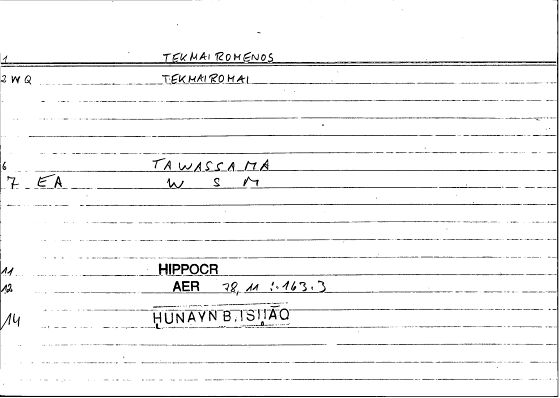 1 TEKMAIROMENOS
2 WQ TEKMAIROMAI
6 TAWASSAMA
7 EA W S M
11 HIPPOCR
12 AER 78, 11 :.163.3
14 ḤUNAYN B. ISḤĀQ